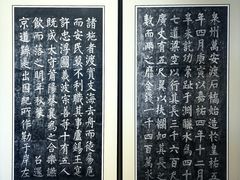 泉州萬安渡石橋始造於皇祐五
年四月庚寅以嘉祐四年十二月
辛未訖功絫趾于淵釃水為四十
七道梁空以行其長三千六百尺
廣丈有五尺翼以扶欄如其長之
數而兩之靡金錢一千四百萬求
諸施者渡實支海去舟而徒易危
而安民莫不利職其事盧錫王寔
許忠浮圖義波宗善等十有五人
既成太守莆陽蔡襄為之合樂讌
飲而落之明年秋蒙 召還
京道繇是出因紀所作勒于岸左